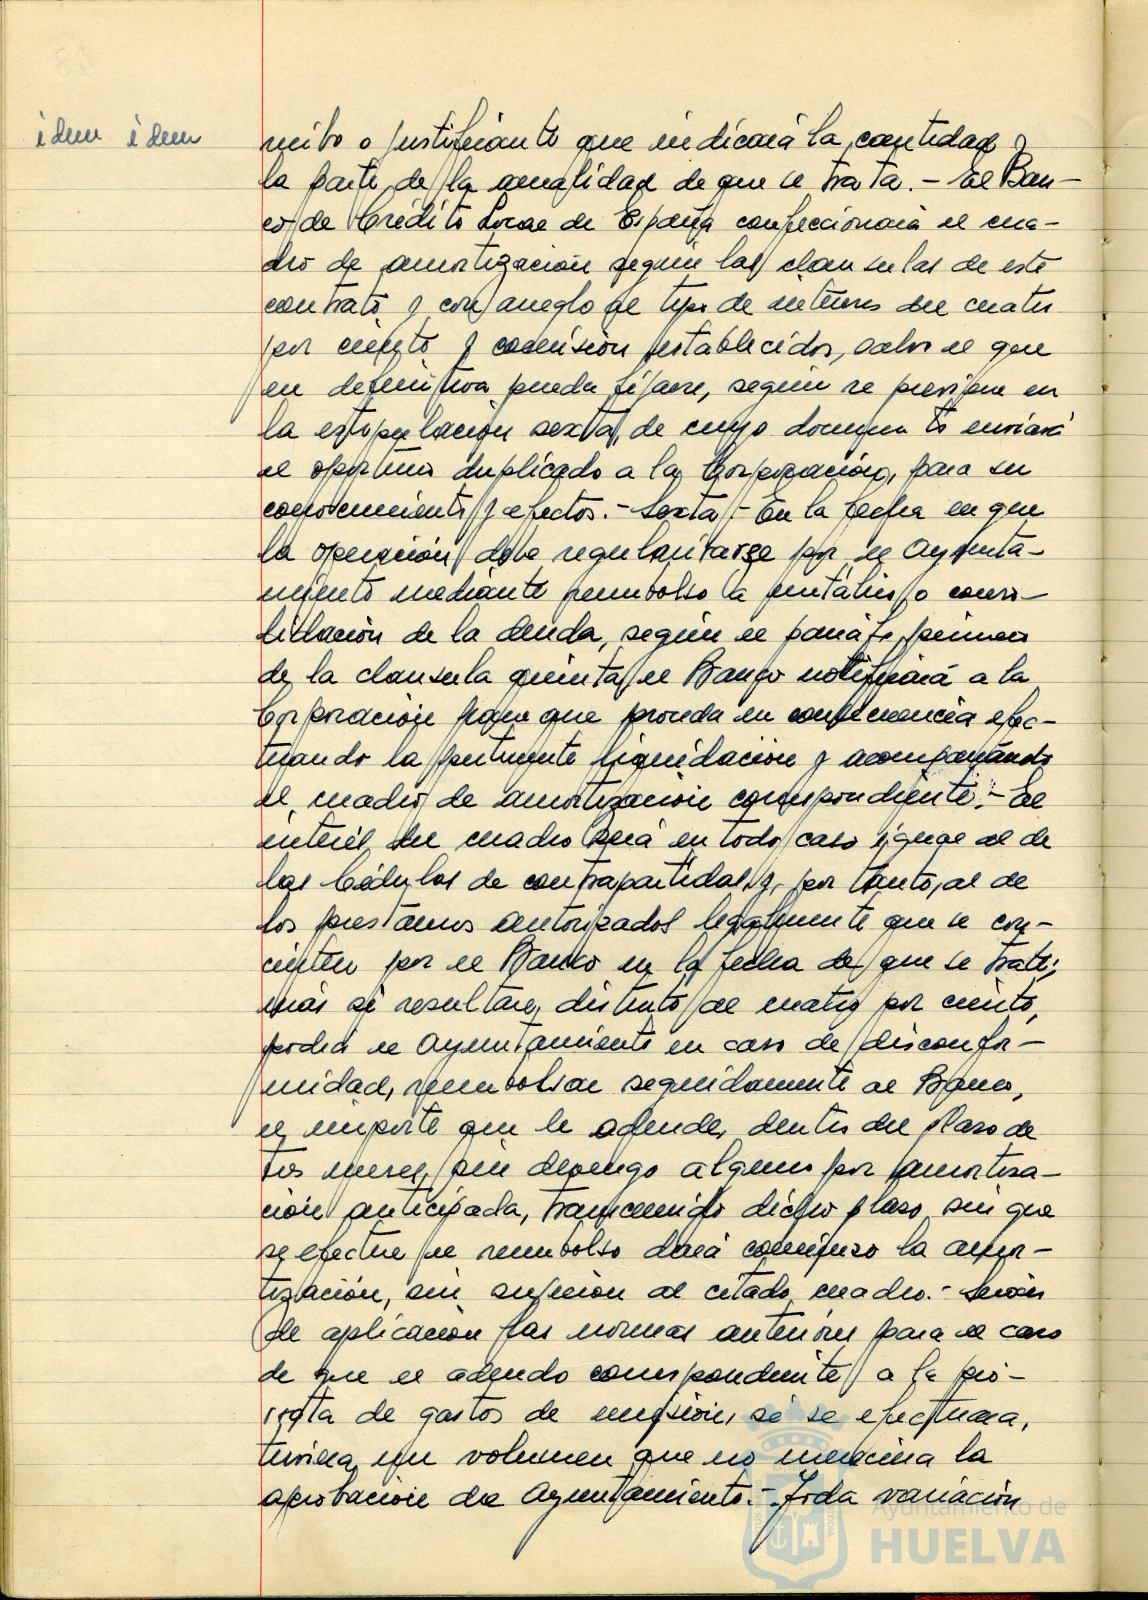 idem idem
recibo o justificante que indicará la cantidad y
la parte de la anualidad de que se trata.- El Ban-
co de Crédito Local de España confeccionará el cua-
dro de amortización según las clausulas de este
contrato y con arreglo al tipo de interés del cuatro
por ciento y comisión establecidos, salvo el que
en definitiva pueda fijarse, según se previene en
la estipulación sexta, de cuyo documento enviará
el oportuno duplicado a la Corporación, para su
conocimiento y efectos.- Sexta.- En la fecha en que
la operación deba regularizarse por el Ayunta-
miento mediante reembolso a metálico o conso-
lidación de la deuda, según el párrafo primero
de la clausula quinta, el Banco notificará a la
Corporación para que proceda en consecuencia efec-
tuando la pertinente liquidación y acompañando
el cuadro de amortización correspondiente.- El
interés del cuadro será en todo caso igual al de
las Cédulas de contrapartidas y, por tanto, al de
los prestamos autorizados legalmente que se con-
cierten por el Banco en la fecha de que se trate;
más si resultare distinto al cuatro por ciento,
podrá el Ayuntamiento en caso de disconfor-
midad, reembolsar seguidamente al Banco,
el importe que le adeude, dentro del plazo de
tres meses, sin devengo alguno por amortiza-
ción anticipada, transcurrido dicho plazo sin que
se efectue el reembolso dará comienzo la amor-
tización, con sujeción al citado cuadro.- Serán
de aplicación las normas anteriores para el caso
de que el adeudo correspondiente a la pro-
rrata de gastos de emisión, si se efectuara,
tuviera un volumen que no mereciera la
aprobación del Ayuntamiento.- Toda variación
Ayuntamiento de
HUELVA